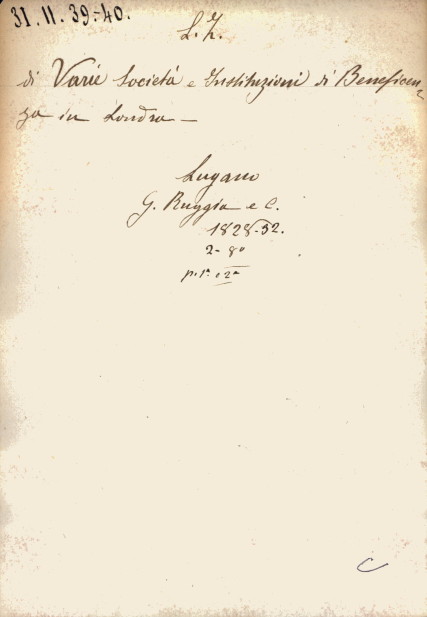 31. 11. 39.-40.
L. Z.
di Varie Società e Instituzioni di Beneficen-
za in Londra —
Lugano
G. Ruggia e C.
1828-32.
2- 8°
p. 1ª e 2ª
C